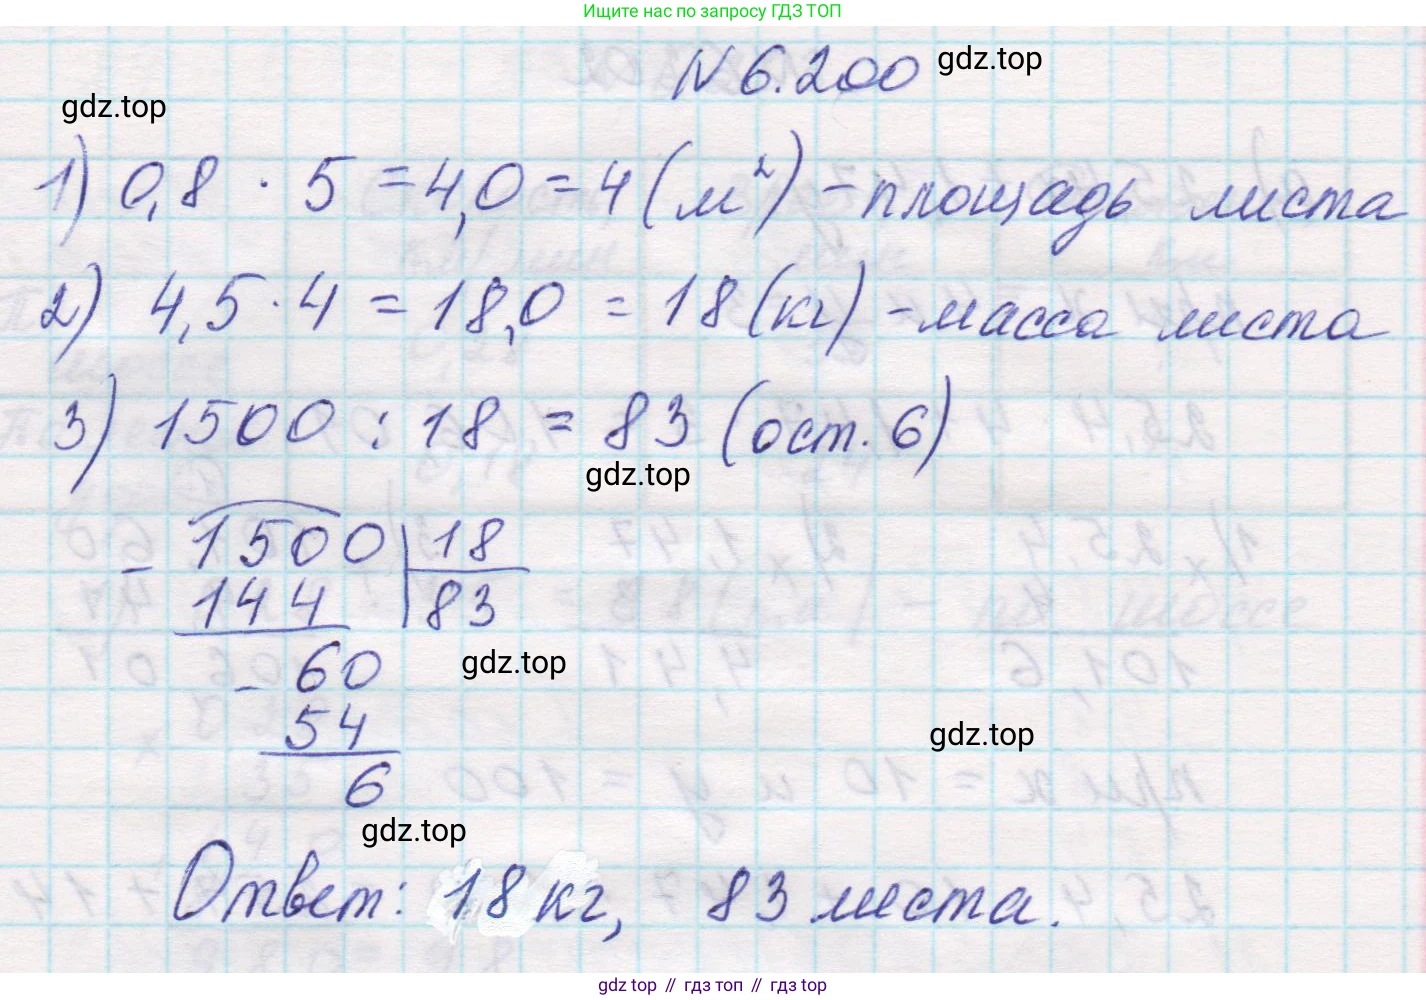 Ищите нас по запросу ГДЗ ТОП
N 6.200
gdz.top
gdz.top
1) 0,8 · 5 = 4,0 = 4 (м²) – площадь листа
2) 4,5 · 4 = 18,0 = 18 (кг) – масса листа
3) 1500 : 18 = 83 (ост. 6)
gdz.top
– 1500 | 18
144 | 83
– 60
gdz.top
54
gdz.top
6
gdz.top
Ответ: 18 кг, 83 листа.
gdz.top // гдз топ // гдз top